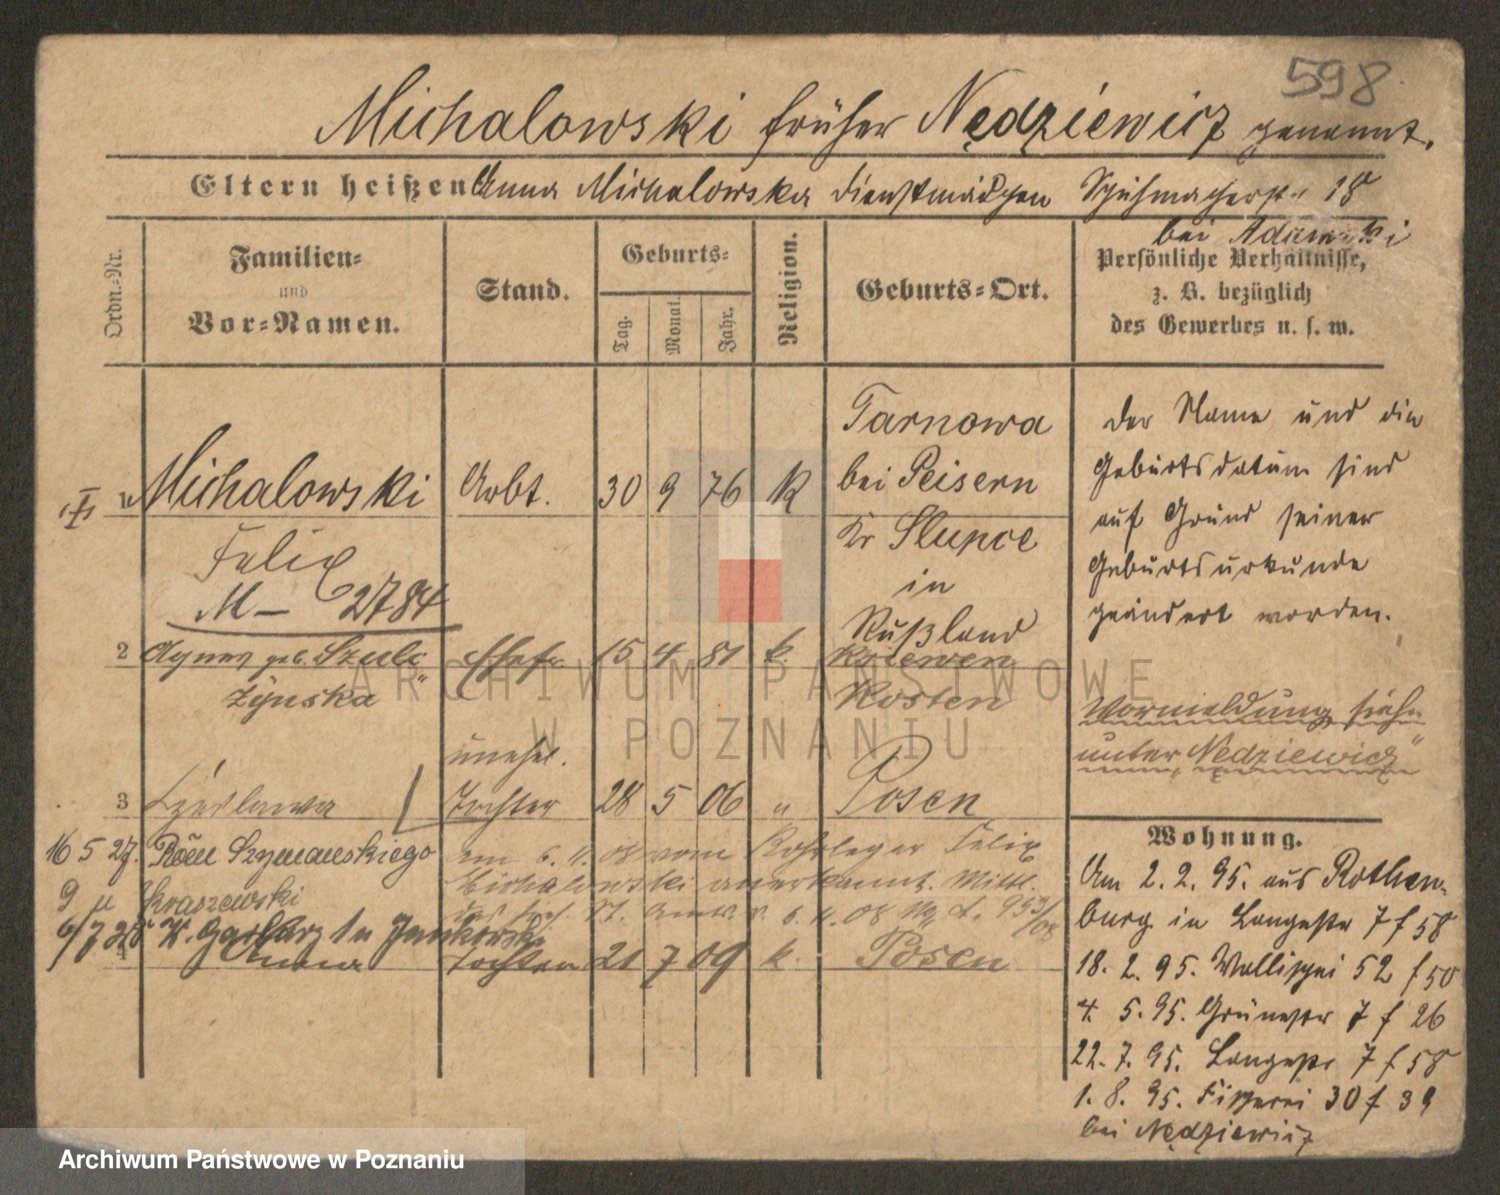 598
Michalowski früher Nędziewicz genannt.
Eltern heißen Anna Michalowska Dienstmädchen Schuhmacherstr. 18
bei Adamski
Ordn.-Nr.
Familien-
und
Vor-Namen.
Stand.
Geburts-
Tag.
Monat.
Jahr.
Religion.
Geburts-Ort.
Persönliche Verhältnisse,
z. B. bezüglich
des Gewerbes u. s. w.
1 Michalowski Arbt. 30 9 76 K
Felix
M— 2784
Tarnowa
bei Peisern
Kr Slupce
in
Rußland
2 Agnes geb. Szulc
zynska
Ehefr 15 4 81 k.
Kriewen
Kosten
unehel.
3 Czeslawa Tochter 28 5 06 " Posen
16 5 27. Röm Szymanskiego
9 u Kraszewski
am 6. 11. 08 vom Rohrleger Felix
Michalowski anerkannt. Mittl.
6. 11. 08
6/7 28 K. Garbary 1 u Jankowski
4 Anna Tochter 21 7 09 k. Posen
Der Name und die
Geburtsdatum sind
auf Grund seiner
Geburtsurkunde
geändert worden.
Vormeldung siehe
unter "Nędziewicz"
Wohnung.
Am 2. 2. 95. aus Rothen-
burg in Langestr 7 f 58
18. 2. 95. Wallischei 52 f 50
4. 5. 95. Grünestr 7 f 26
22. 7. 95. Langestr 7 f 58
1. 8. 95. Fischerei 30 f 39
bei Nędziewicz
ARCHIWUM PAŃSTWOWE
W POZNANIU
Archiwum Państwowe w Poznaniu